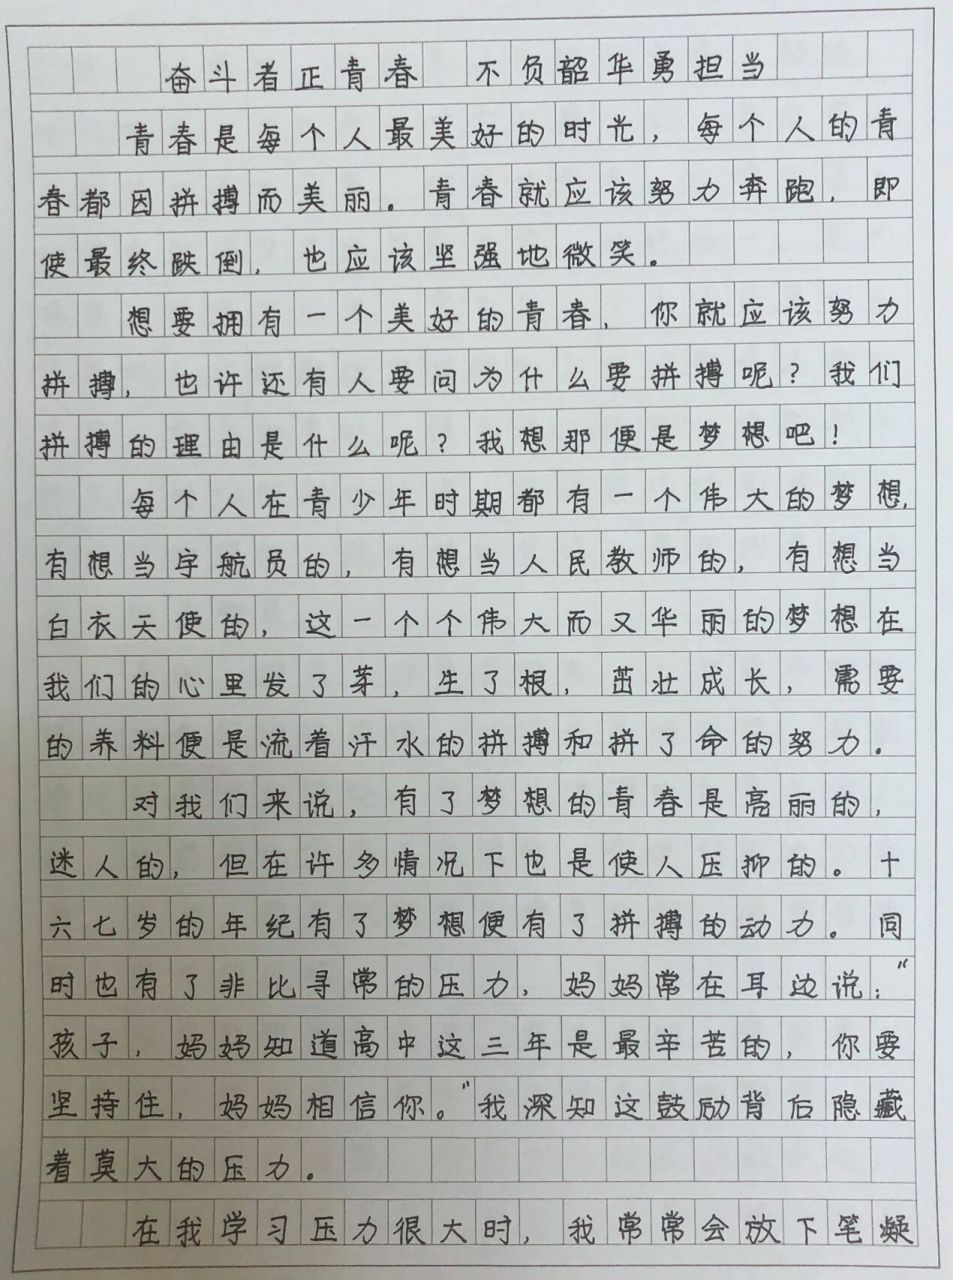 奋斗者正青春 不负韶华勇担当
青春是每个人最美好的时光，每个人的青
春都因拼搏而美丽。青春就应该努力奔跑，即
使最终跌倒，也应该坚强地微笑。
想要拥有一个美好的青春，你就应该努力
拼搏，也许还有人要问为什么要拼搏呢？我们
拼搏的理由是什么呢？我想那便是梦想吧！
每个人在青少年时期都有一个伟大的梦想，
有想当宇航员的，有想当人民教师的，有想当
白衣天使的，这一个个伟大而又华丽的梦想在
我们的心里发了芽，生了根，茁壮成长，需要
的养料便是流着汗水的拼搏和拼了命的努力。
对我们来说，有了梦想的青春是亮丽的，
迷人的，但在许多情况下也是使人压抑的。十
六七岁的年纪有了梦想便有了拼搏的动力。同
时也有了非比寻常的压力，妈妈常在耳边说：“
孩子，妈妈知道高中这三年是最辛苦的，你要
坚持住，妈妈相信你。”我深知这鼓励背后隐藏
着莫大的压力。
在我学习压力很大时，我常常会放下笔凝